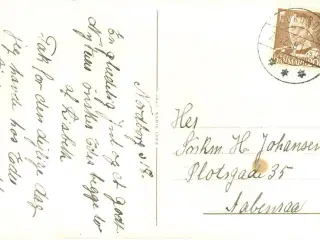 Nordborg d. 18
En glædelig Jul og et godt
Nytaar ønskes Eder begge to
af Lisbeth
Tak for den dejlige dag
jeg havde hos Eder
DANMARK 20
Hr
H. Johansen
Plotsgade 35
Aabenraa